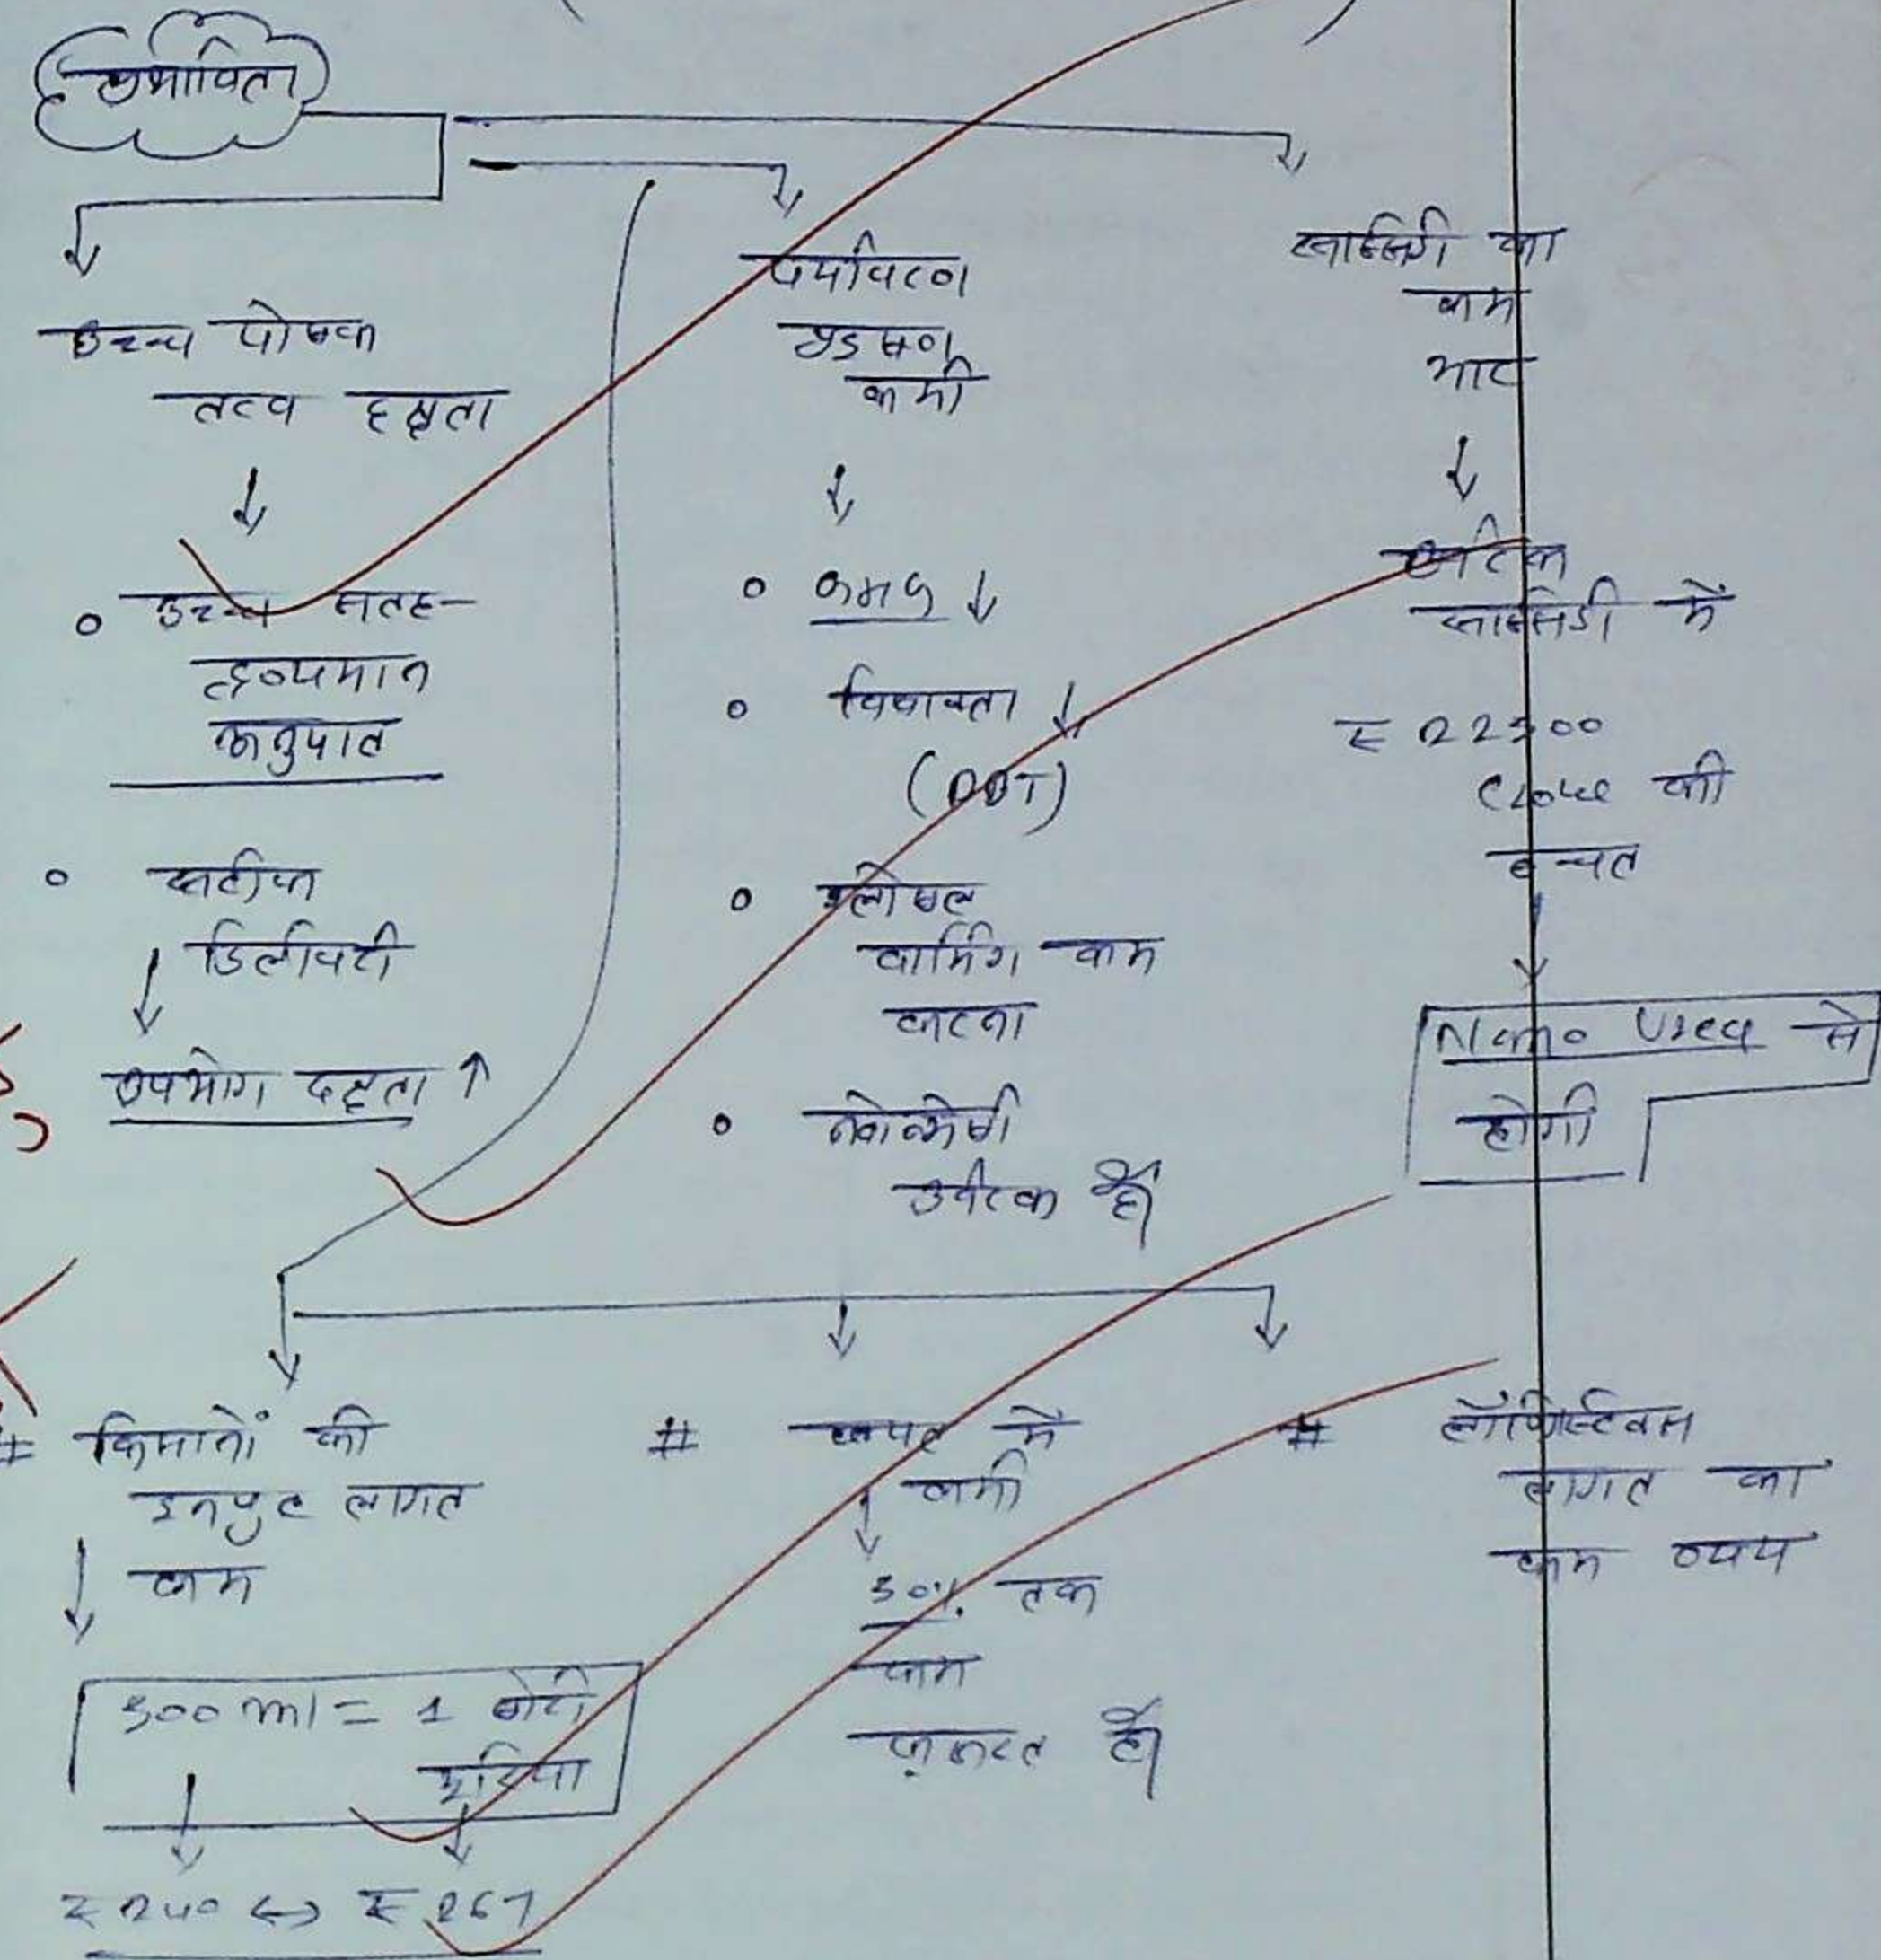 प्रभाविता
उच्च पोषक
तत्व दक्षता
उच्च सतह-
द्रव्यमान
अनुपात
सटीक
डिलीवरी
उपभोग दक्षता ↑
पर्यावरण
प्रदूषण
कमी
↓
विषाक्तता ↓
(DDT)
ग्लोबल
वार्मिंग कम
करना
नवोन्मेषी
उर्वरक है।
सब्सिडी का
कम
भार
उर्वरक
सब्सिडी में
की
बचत
Nano Urea से
होगी
# किसानों की
इनपुट लागत
कम
500 ml = 1 बोरी
यूरिया
₹ 240 ↔ ₹ 267
# खपत में
कमी
50% तक
कम
ज़रूरत है।
# लॉजिस्टिक्स
लागत का
कम व्यय